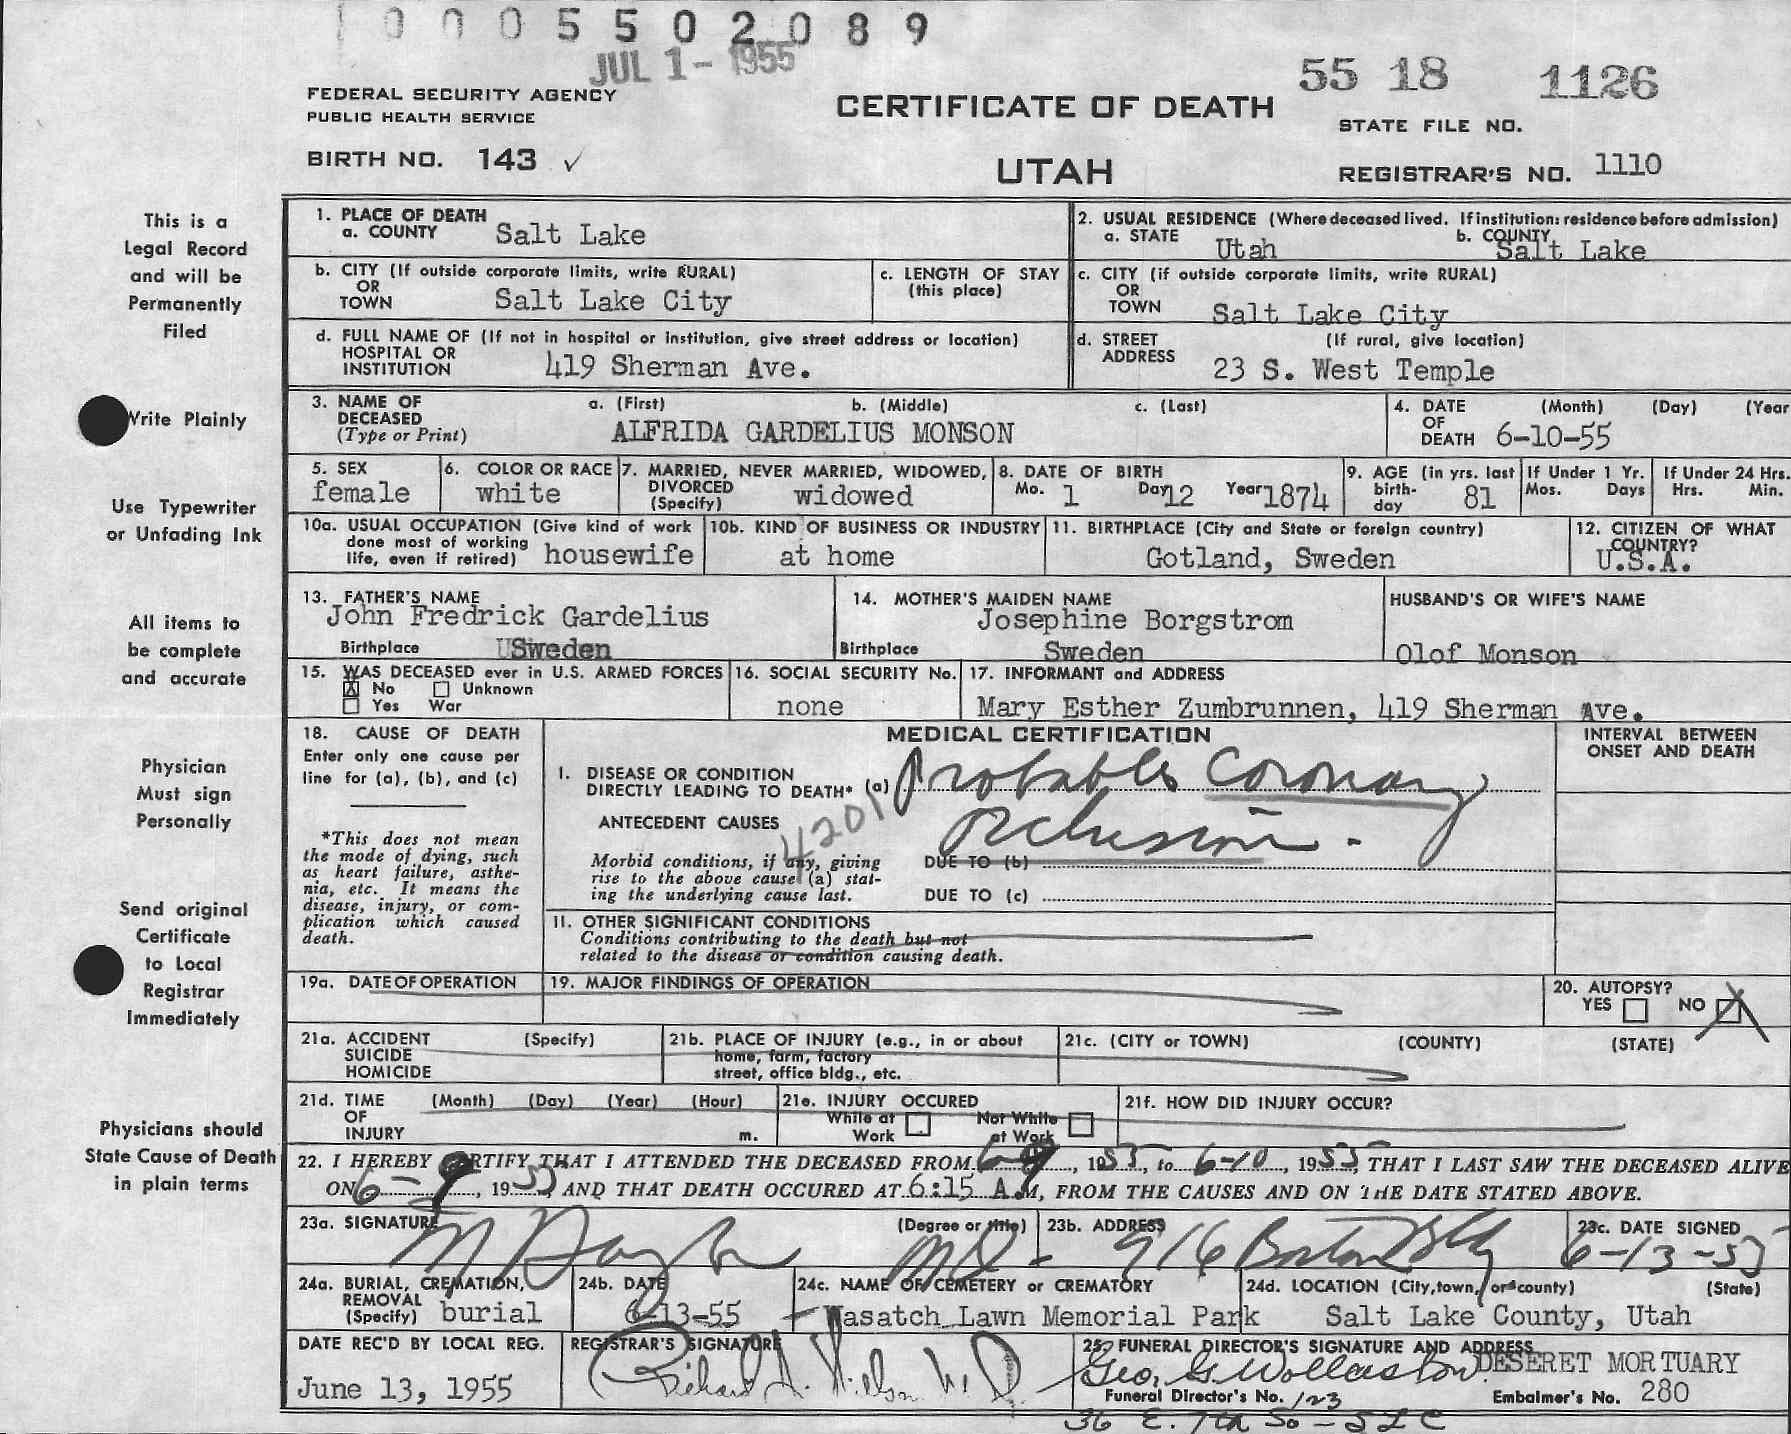 0 0 0 5 5 0 2 0 8 9
JUL 1 - 1955
55 18 1126
FEDERAL SECURITY AGENCY
PUBLIC HEALTH SERVICE
CERTIFICATE OF DEATH
STATE FILE NO.
BIRTH NO. 143 ✓
UTAH
REGISTRAR'S NO. 1110
This is a
Legal Record
and will be
Permanently
Filed
Write Plainly
Use Typewriter
or Unfading Ink
All items to
be complete
and accurate
Physician
Must sign
Personally
Send original
Certificate
to Local
Registrar
Immediately
Physicians should
State Cause of Death
in plain terms
1. PLACE OF DEATH
a. COUNTY Salt Lake
2. USUAL RESIDENCE (Where deceased lived. If institution: residence before admission)
a. STATE Utah b. COUNTY Salt Lake
b. CITY (If outside corporate limits, write RURAL)
OR
TOWN Salt Lake City
c. LENGTH OF STAY
(this place)
c. CITY (if outside corporate limits, write RURAL)
OR
TOWN Salt Lake City
d. FULL NAME OF (If not in hospital or institution, give street address or location)
HOSPITAL OR
INSTITUTION 419 Sherman Ave.
d. STREET (If rural, give location)
ADDRESS 23 S. West Temple
3. NAME OF DECEASED (Type or Print)
a. (First) b. (Middle) c. (Last)
ALFRIDA GARDELIUS MONSON
4. DATE (Month) (Day) (Year
OF
DEATH 6-10-55
5. SEX
female
6. COLOR OR RACE
white
7. MARRIED, NEVER MARRIED, WIDOWED,
DIVORCED
(Specify) widowed
8. DATE OF BIRTH
Mo. 1 Day 12 Year 1874
9. AGE (in yrs. last
birth-
day 81
If Under 1 Yr.
Mos. Days
If Under 24 Hrs.
Hrs. Min.
10a. USUAL OCCUPATION (Give kind of work
done most of working
life, even if retired) housewife
10b. KIND OF BUSINESS OR INDUSTRY
at home
11. BIRTHPLACE (City and State or foreign country)
Gotland, Sweden
12. CITIZEN OF WHAT
COUNTRY?
U.S.A.
13. FATHER'S NAME
John Fredrick Gardelius
Birthplace Sweden
14. MOTHER'S MAIDEN NAME
Josephine Borgstrom
Birthplace Sweden
HUSBAND'S OR WIFE'S NAME
Olof Monson
15. WAS DECEASED ever in U.S. ARMED FORCES
X No Unknown
Yes War
16. SOCIAL SECURITY No.
none
17. INFORMANT and ADDRESS
Mary Esther Zumbrunnen, 419 Sherman Ave.
18. CAUSE OF DEATH
Enter only one cause per
line for (a), (b), and (c)
*This does not mean
the mode of dying, such
as heart failure, asthe-
nia, etc. It means the
disease, injury, or com-
plication which caused
death.
MEDICAL CERTIFICATION
INTERVAL BETWEEN
ONSET AND DEATH
I. DISEASE OR CONDITION
DIRECTLY LEADING TO DEATH* (a) Probable Coronary
occlusion -
4201
ANTECEDENT CAUSES
Morbid conditions, if any, giving
rise to the above cause (a) stat-
ing the underlying cause last.
DUE TO (b)
DUE TO (c)
11. OTHER SIGNIFICANT CONDITIONS
Conditions contributing to the death but not
related to the disease or condition causing death.
19a. DATE OF OPERATION
19. MAJOR FINDINGS OF OPERATION
20. AUTOPSY?
YES NO X
21a. ACCIDENT (Specify)
SUICIDE
HOMICIDE
21b. PLACE OF INJURY (e.g., in or about
home, farm, factory
street, office bldg., etc.
21c. (CITY or TOWN) (COUNTY) (STATE)
21d. TIME (Month) (Day) (Year) (Hour)
OF
INJURY m.
21e. INJURY OCCURED
While at Work Not While at Work
21f. HOW DID INJURY OCCUR?
22. I HEREBY CERTIFY THAT I ATTENDED THE DECEASED FROM 6-9, 1955, to 6-10, 1955, THAT I LAST SAW THE DECEASED ALIVE
ON 6-9, 1955, AND THAT DEATH OCCURED AT 6:15 A.M, FROM THE CAUSES AND ON THE DATE STATED ABOVE.
23a. SIGNATURE (Degree or title) MD -
23b. ADDRESS 916 Boston Bldg
23c. DATE SIGNED
6-13-55
24a. BURIAL, CREMATION,
REMOVAL
(Specify) burial
24b. DATE
6-13-55
24c. NAME OF CEMETERY or CREMATORY
Wasatch Lawn Memorial Park
24d. LOCATION (City, town, or county) (State)
Salt Lake County, Utah
DATE REC'D BY LOCAL REG.
June 13, 1955
REGISTRAR'S SIGNATURE
Richard A. Nielson M.D.
25. FUNERAL DIRECTOR'S SIGNATURE AND ADDRESS
Geo. G. Wollaston DESERET MORTUARY
Funeral Director's No. 123 Embalmer's No. 280
36 E. 7th So - SLC